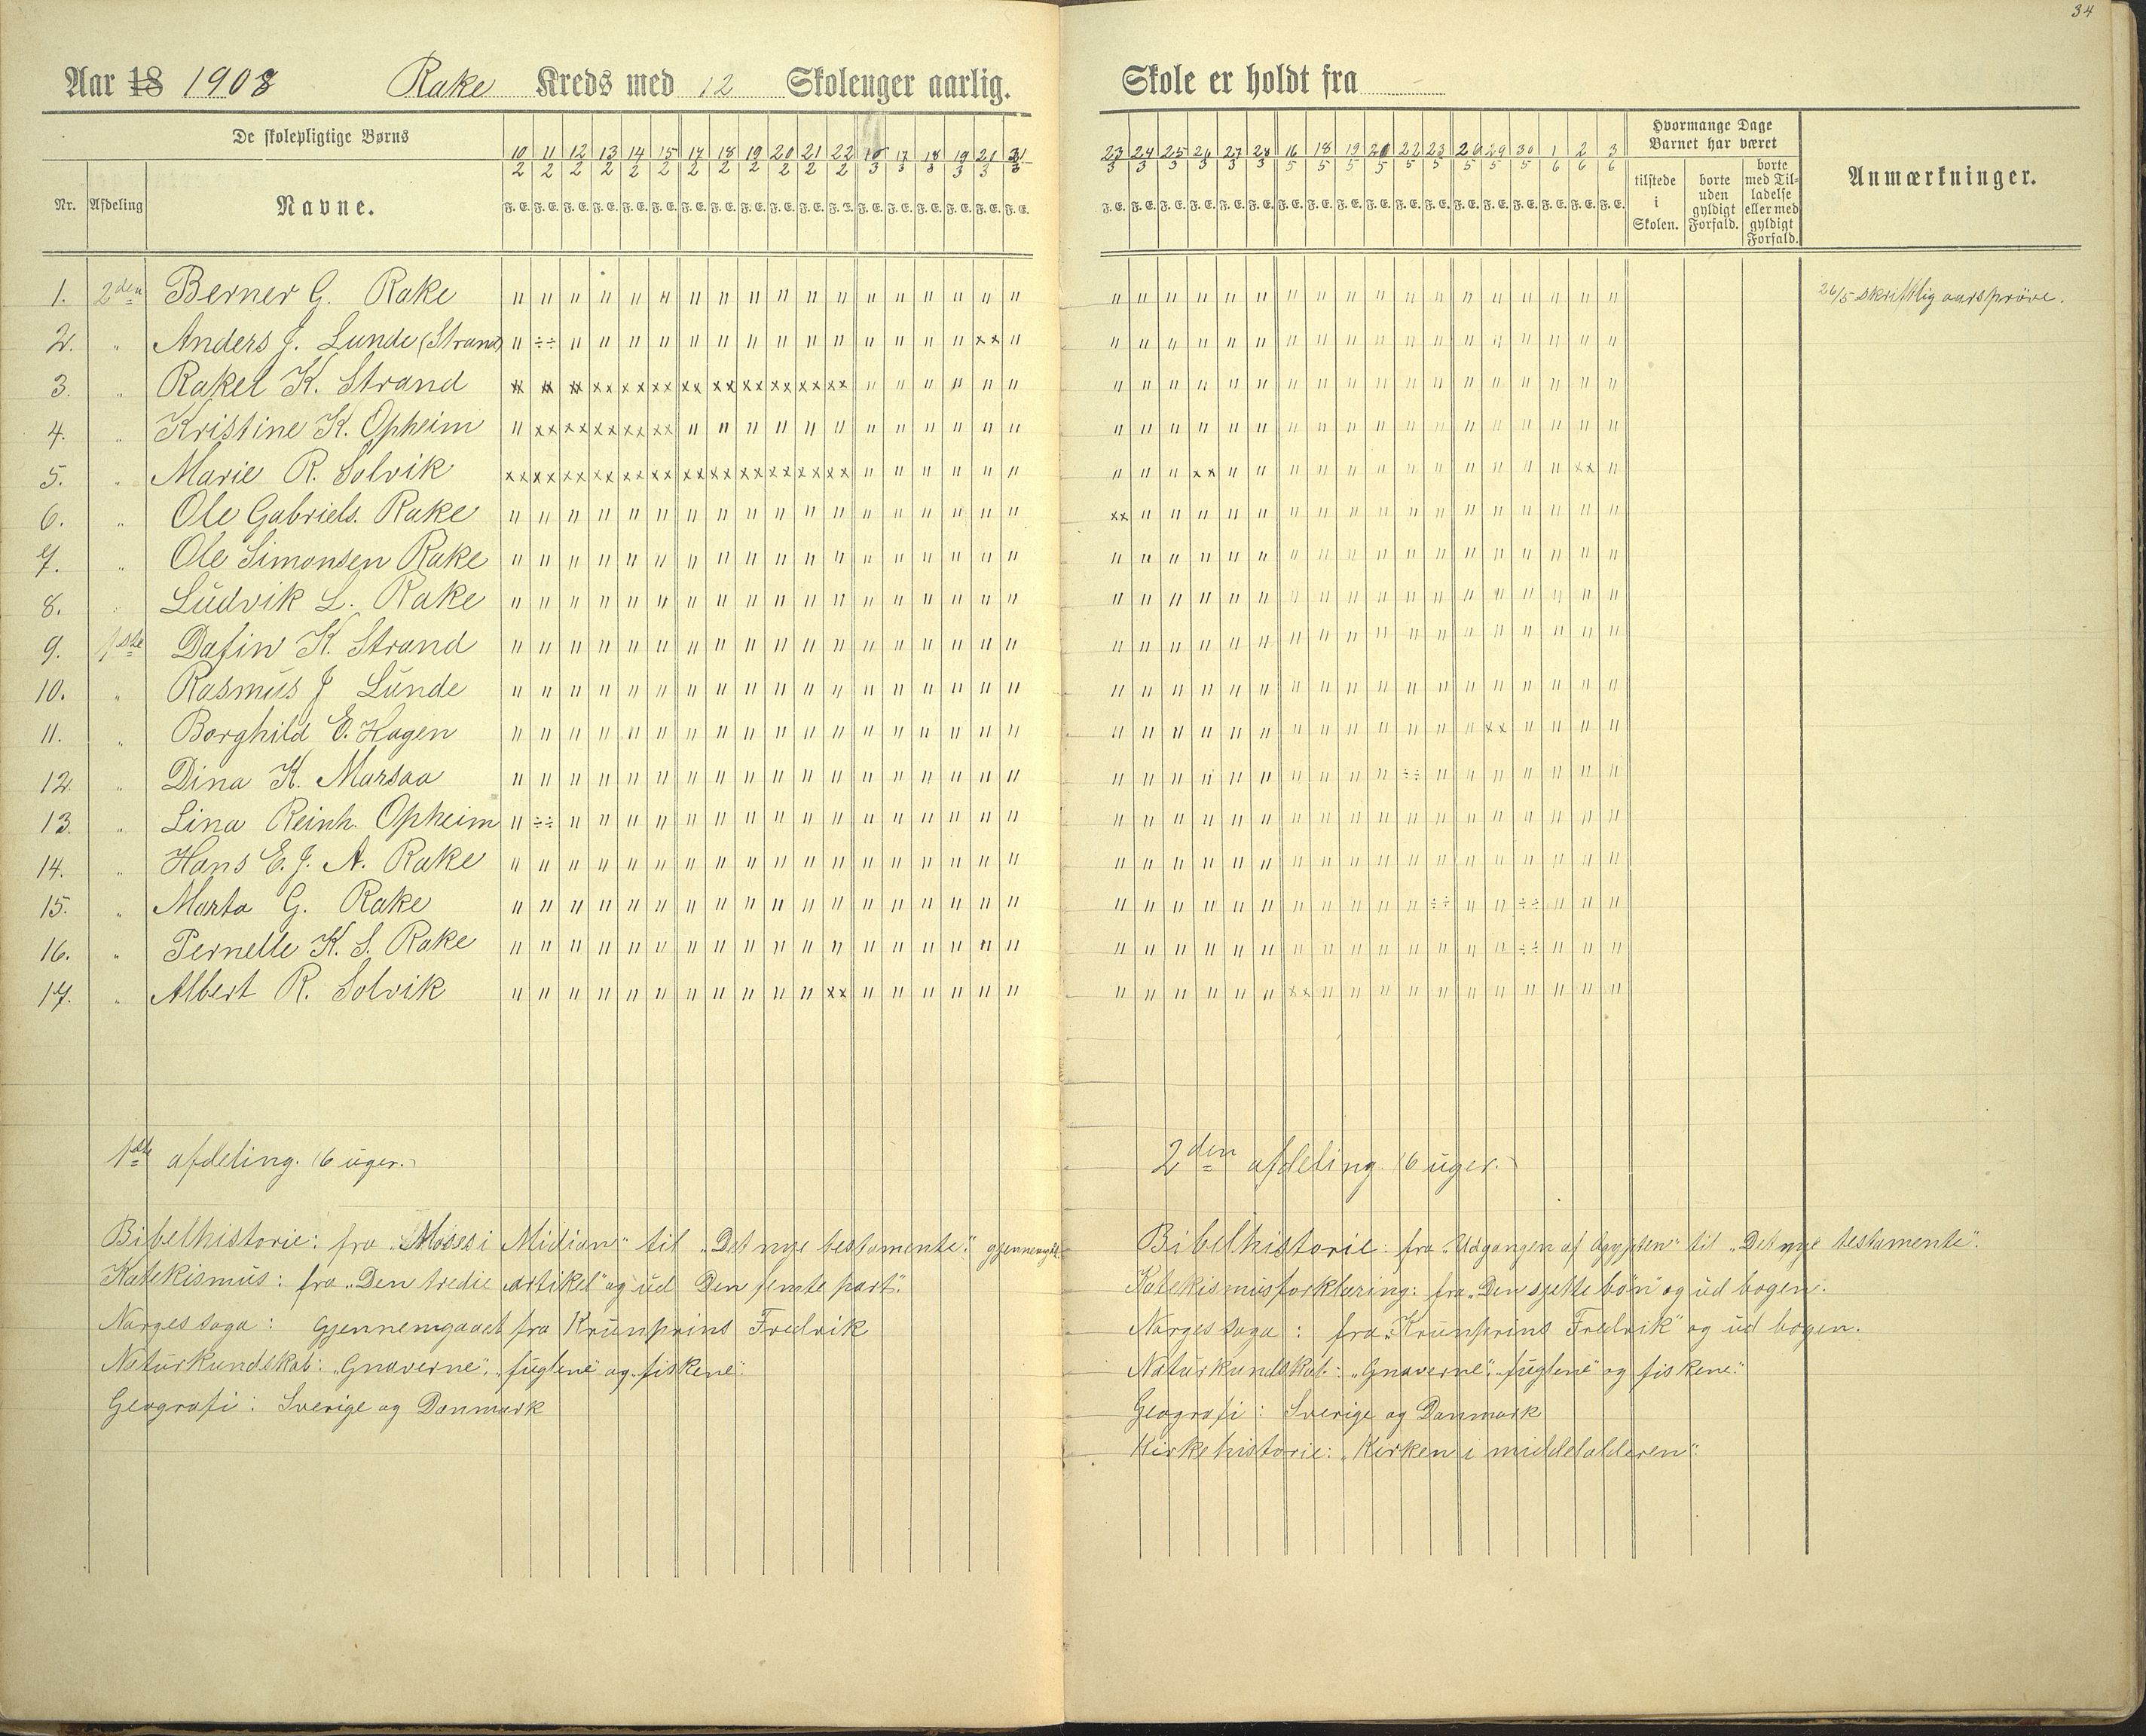 34
Aar 18 1903 Rake Kreds med 12 Skoleuger aarlig. Skole er holdt fra
De skolepligtige Børns
Nr. Afdeling Navne.
10/2 11/2 12/2 13/2 14/2 15/2 17/2 18/2 19/2 20/2 21/2 22/2 16/3 17/3 18/3 19/3 21/3 21/3
F. E. F. E. F. E. F. E. F. E. F. E. F. E. F. E. F. E. F. E. F. E. F. E. F. E. F. E. F. E. F. E. F. E. F. E.
23/3 24/3 25/3 26/3 27/3 28/3 16/5 18/5 19/5 20/5 22/5 23/5 26/5 29/5 30/5 1/6 2/6 3/6
F. E. F. E. F. E. F. E. F. E. F. E. F. E. F. E. F. E. F. E. F. E. F. E. F. E. F. E. F. E. F. E. F. E. F. E.
Hvormange Dage
Barnet har været
tilstede
i
Skolen.
borte
uden
gyldigt
Forfald.
borte
med Til-
ladelse
eller med
gyldigt
Forfald.
Anmærkninger.
1. 2den Berner G. Rake
26/5 skriftlig aarsprøve.
2. " Anders J. Lunde (Strand)
3. " Rakel K. Strand
4. " Kristine K. Opheim
5. " Marie R. Solvik
6. " Ole Gabriels. Rake
7. " Ole Simonsen Rake
8. " Ludvik L. Rake
9. 1ste Dafin K. Strand
10. " Rasmus J Lunde
11. " Borghild E. Hagen
12. " Dina K. Marsaa
13. " Lina Reinh. Opheim
14. " Hans E. J. A. Rake
15. " Marta G. Rake
16. " Pernelle K. S. Rake
17. " Albert R. Solvik
1ste afdeling. (6 uger.)
Bibelhistorie: fra „Moses i Midian" til „Det nye testamente." gjennemgik
Katekismus: fra „Den tredie artikel" og ud Den femte part".
Norges saga: Gjennemgaaet fra Krunprins Fredrik
Naturkundskab: „Gnaverne", „fuglene" og „fiskene".
Geografi: Sverige og Danmark
2den afdeling (6 uger.)
Bibelhistorie: fra „Udgangen af Ægypten" til „Det nye testamente".
Katekismusforklaring: fra „Den sjette bøn" og ud bogen.
Norges saga: fra „Krunprins Fredrik" og ud bogen.
Naturkundskab: „Gnaverne", „fuglene" og fiskene."
Geografi: Sverige og Danmark
Kirkehistorie: „Kirken i middelalderen".